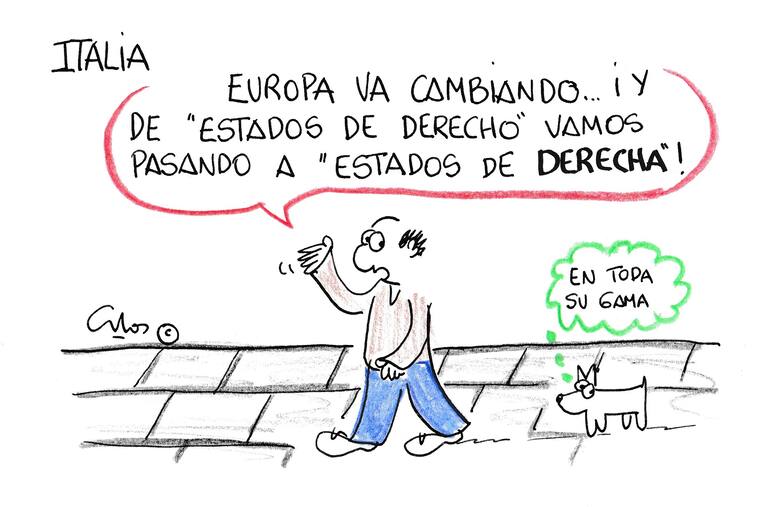 ITALIA
EUROPA VA CAMBIANDO... ¡ Y
DE "ESTADOS DE DERECHO" VAMOS
PASANDO A "ESTADOS DE DERECHA" !
EN TODA
SU GAMA
©